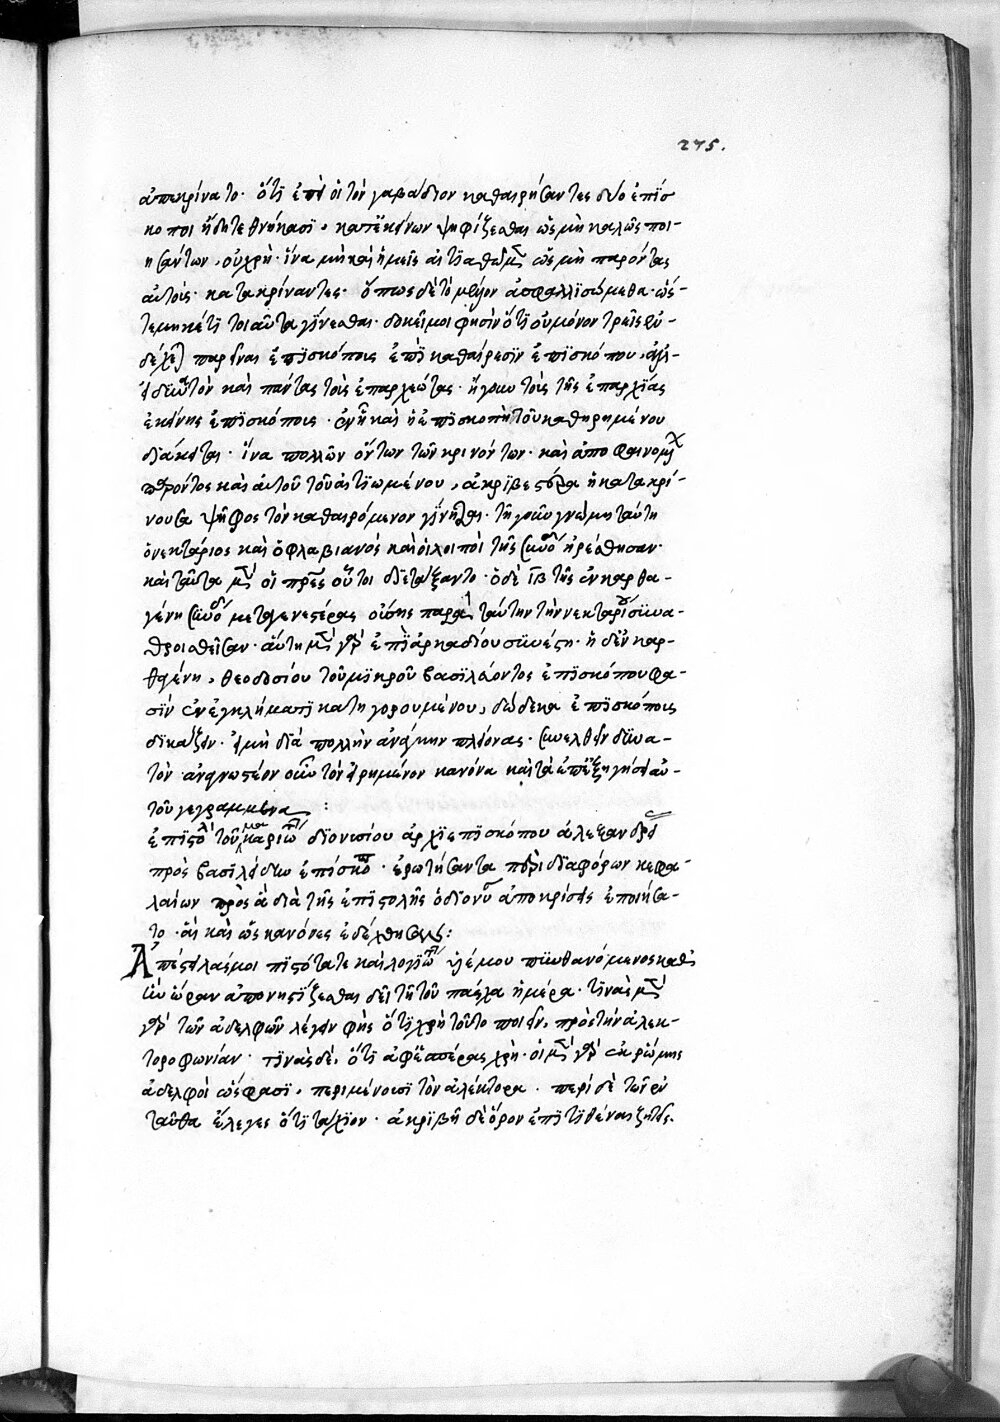 275.
ἀπεκρίνατο· ὅτι ἐπεὶ οἱ τὸν γαβάδιον καθαιρήσαντες δύο ἐπίσ-
κοποι ἤδη τεθνήκασι, κατ' ἐκείνων ψηφίζεσθαι ὡς μὴ καλῶς ποι-
ησάντων, οὐ χρή· ἵνα μὴ καὶ ἡμεῖς αἰτιαθῶμεν ὡς μὴ παρόντας
αὐτοὺς κατακρίναντες· ὅπως δὲ τὸ μέλλον ἀσφαλισώμεθα· ὡς-
τε μηκέτι τοιαῦτα γίνεσθαι· δοκεῖ μοι φησὶν ὅτι οὐ μόνον τρεῖς ἐν-
δέχεται παρεῖναι ἐπισκόπους ἐπὶ καθαιρέσιν ἐπισκόπου, ἀλλ'
εἰ δυνατὸν καὶ πάντας τοὺς ἐπαρχεώτας· ἤγουν τοὺς τῆς ἐπαρχίας
ἐκείνης ἐπισκόπους· ἐν ᾗ καὶ ἡ ἐπισκοπὴ τοῦ καθῃρημένου
διάκειται· ἵνα πολλῶν ὄντων τῶν κρινόντων· καὶ ἀποφαινομένων
παρόντος καὶ αὐτοῦ τοῦ αἰτιωμένου, ἀκριβεστέρα ἡ κατακρί-
νουσα ψῆφος τὸν καθαιρόμενον γίνηται· τῇ γοῦν γνώμῃ ταύτῃ
ὁ νεκτάριος καὶ ὁ φλαβιανὸς καὶ οἱ λοιποὶ τῆς συνόδου ἠρέσθησαν·
καὶ ταῦτα μὲν οἱ πατέρες οὗτοι διετάξαντο· ὁ δὲ ιβ τῆς ἐν καρθα-
γένῃ συνόδου μεταγενεστέρας οὔσης παρὰ ταύτην τὴν νεκταρίου συνα-
θροισθεῖσαν· αὕτη μὲν γὰρ ἐπὶ ἀρκαδίου συνέστη· ἡ δ' ἐν καρ-
θαγένῃ, θεοδοσίου τοῦ μικροῦ βασιλεύοντος ἐπισκόπου φα-
σὶν ἐν ἐγκλήματι κατηγορουμένου, δώδεκα ἐπισκόπους
δικάζειν· εἰ μὴ διὰ πολλὴν ἀνάγκην πλείονας· συνελθεῖν δυνα-
τὸν ἀναγνωστέον οὖν τὸν εἰρημένον κανόνα καὶ τὰ ἐπ' ἐξηγήσει αὐ-
τοῦ γεγραμμένα :
ἐπιστολὴ τοῦ μακαριωτάτου διονισίου ἀρχιεπισκόπου ἀλεξανδρείας
πρὸς βασιλείδην ἐπίσκοπον· ἐρωτήσαντα περὶ διαφόρων κεφα-
λαίων πρὸς ἃ διὰ τῆς ἐπιστολῆς ὁ διονύσιος ἀποκρίσεις ἐποιήσα-
το· ἃς καὶ ὡς κανόνες ἐδέχθησαν:
Ἀπέστειλάς μοι πιστότατε καὶ λογιώτατε υἱέ μου πυνθανόμενος καθ'
ἣν ὥραν ἀπονηστίζεσθαι δεῖ τῇ τοῦ πάσχα ἡμέρα· τινὰς μὲν
γὰρ τῶν ἀδελφῶν λέγειν φῂς ὅτι χρὴ τοῦτο ποιεῖν, πρὸς τὴν ἀλεκ-
τοροφωνίαν· τινὰς δέ, ὅτι ἀφ' ἑσπέρας χρή· οἱ μὲν γὰρ ἐν ῥώμῃ
ἀδελφοὶ ὥς φασι, περιμένουσι τὸν ἀλέκτορα· περὶ δὲ τῶν ἐν
ταῦθα ἔλεγες ὅτι τάχιον· ἀκριβῆ δὲ ὅρον ἐπιτιθέναι ζητεῖς.